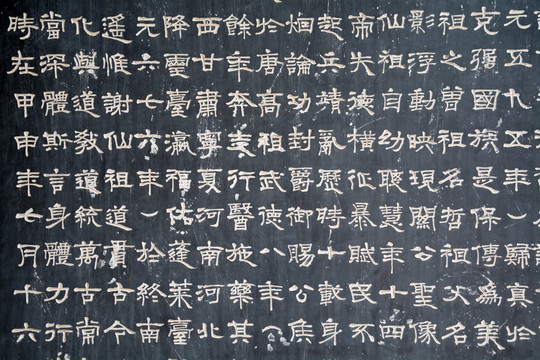 元五九五年八歸真於
克彊國族是保傳為美
祖之嘗祖名哲祖大名
影浮動映現關公聖像
仙祖自幼聰慧年十四
帝失德橫征暴賦民不
起兵靖亂歷時十載身
烟論功封爵御賜公侯
於唐高祖武德八年八
餘年奔走行醫施藥其
西甘肅寧夏河南河北
降靈臺瀛福佑蓬萊臺
元六七六年一於終南
遙惟謝仙祖道貫古今
化與道教道統萬古常
當深體斯言身體力行
時在甲申年七月十六